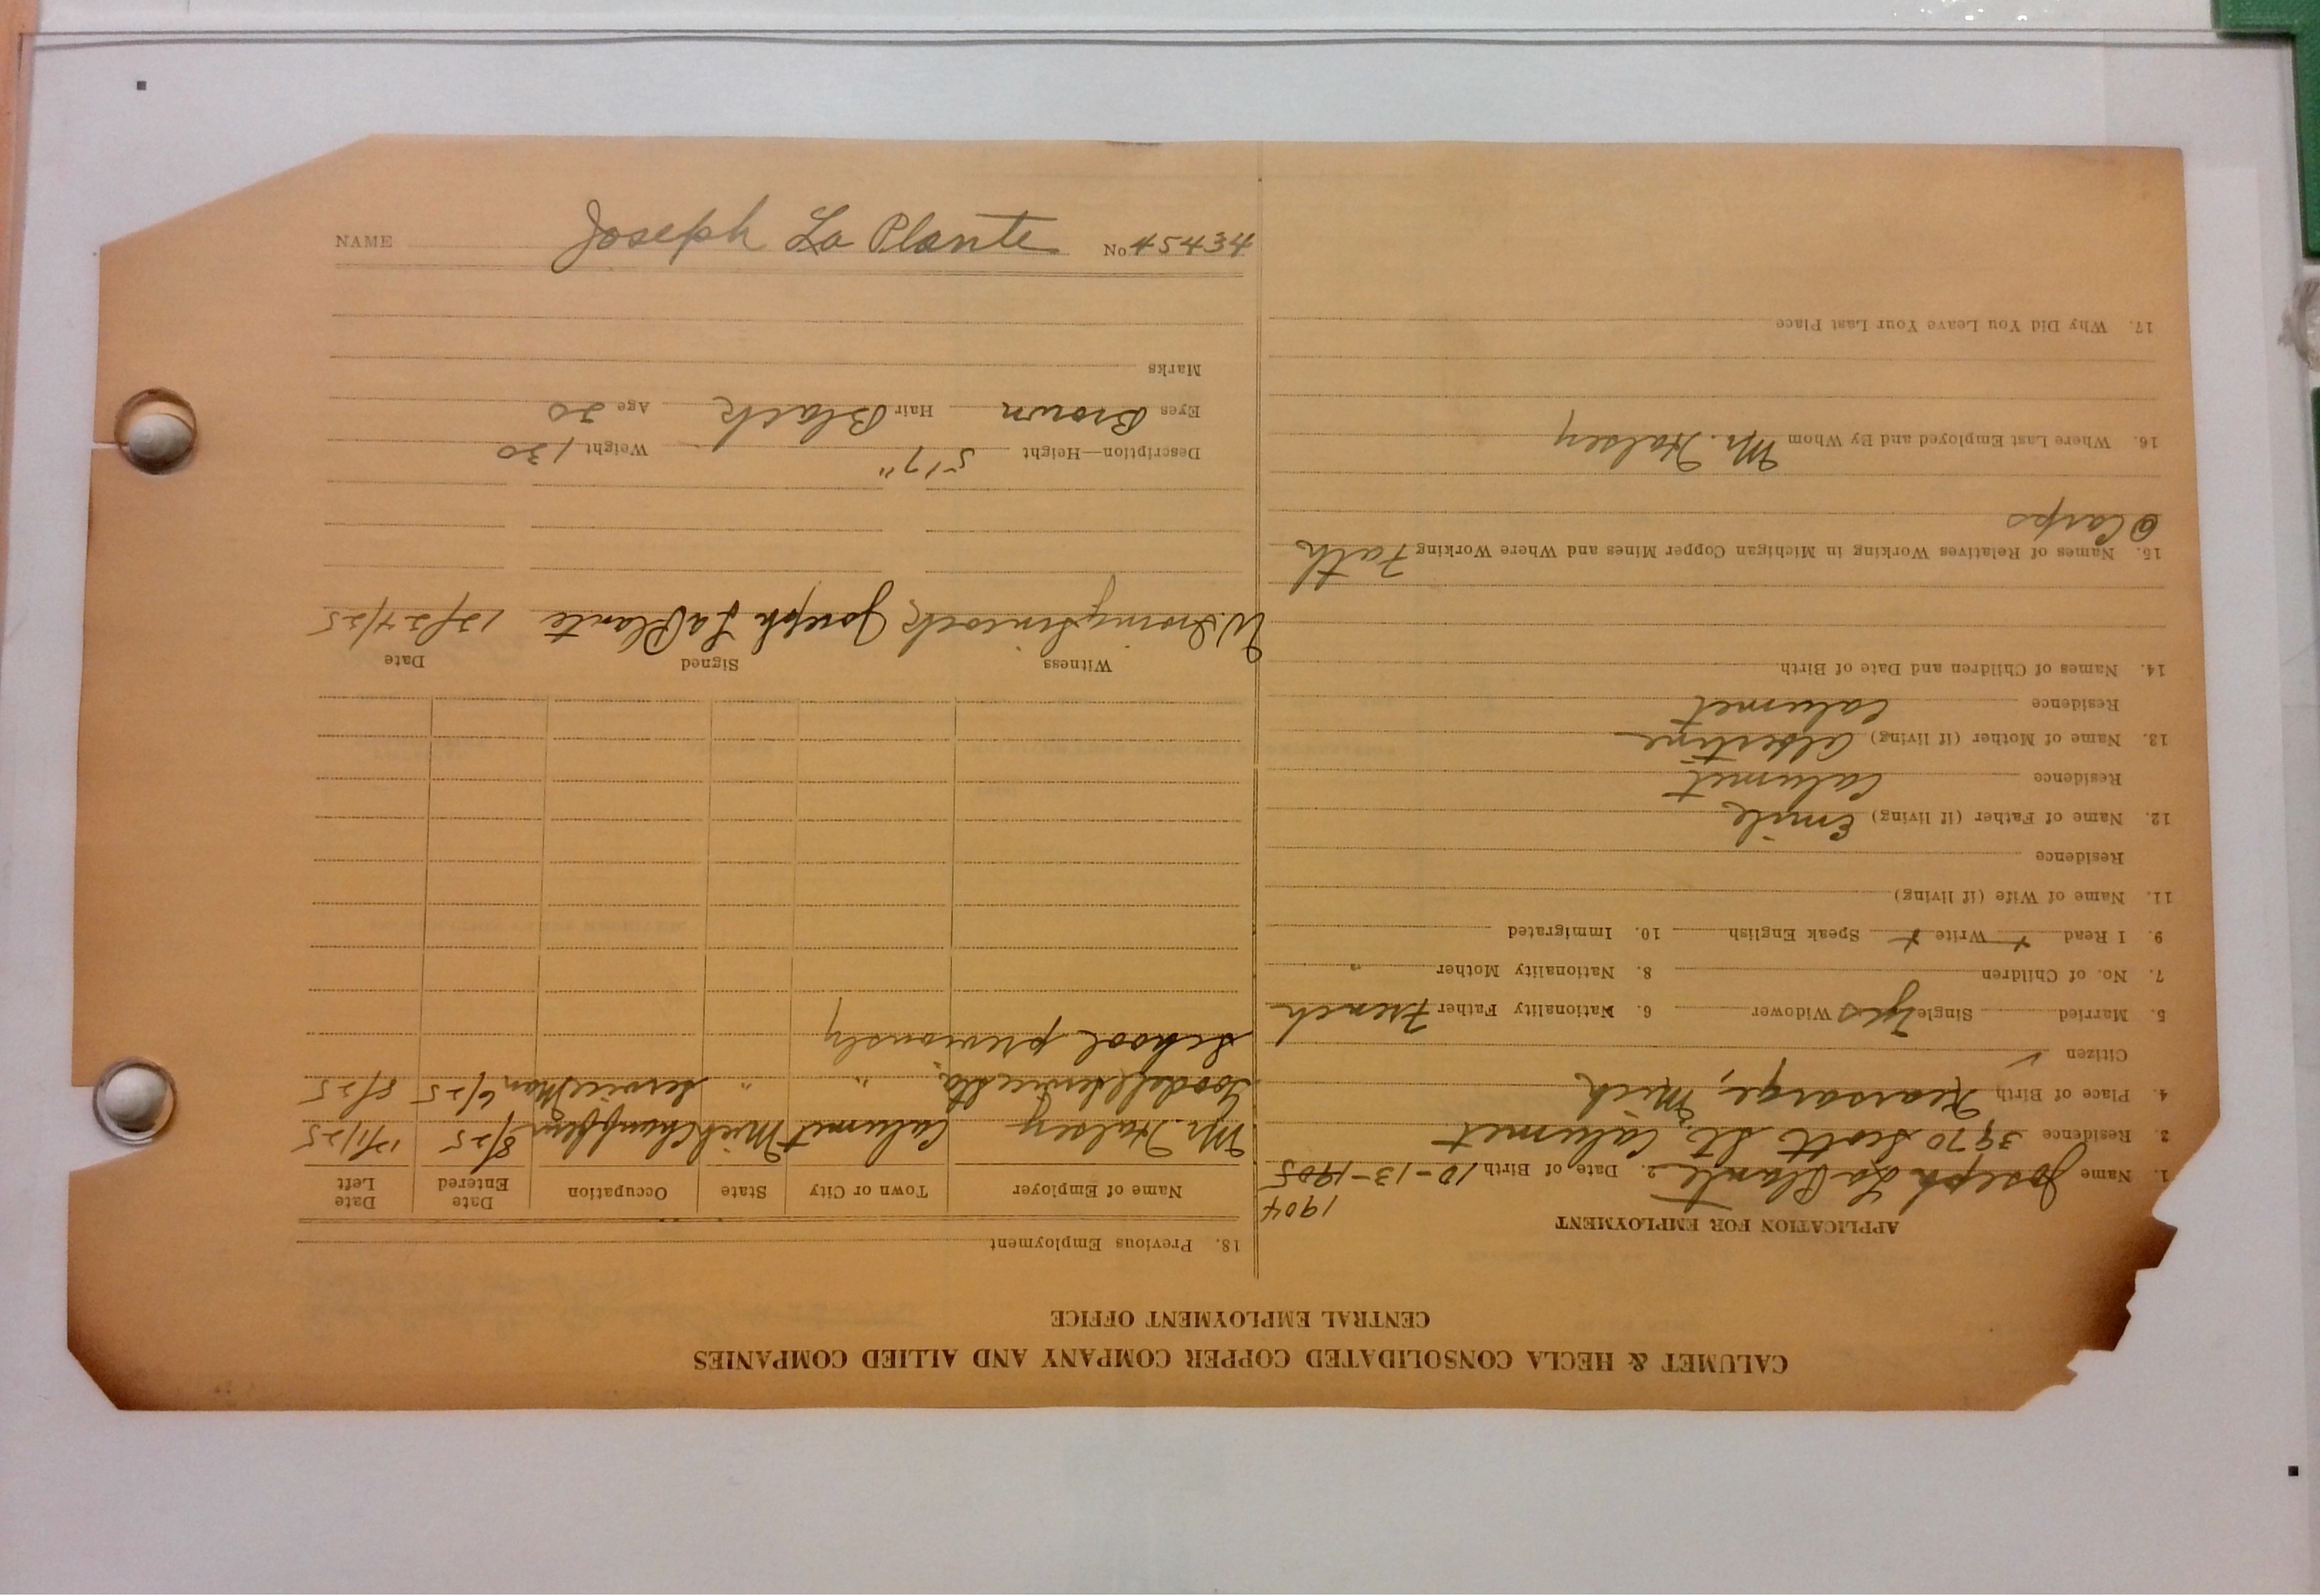 NAME Joseph La Plante No 45434
CALUMET & HECLA CONSOLIDATED COPPER COMPANY AND ALLIED COMPANIES
CENTRAL EMPLOYMENT OFFICE
APPLICATION FOR EMPLOYMENT
1904
1. Name Joseph La Plante 2. Date of Birth 10-13-1905
3. Residence 3970 Scott St, Calumet
4. Place of Birth Kearsarge, Mich
Citizen ✓
5. Married Single yes Widower 6. Nationality Father French
7. No. of Children 8. Nationality Mother "
9. I Read + Write + Speak English 10. Immigrated
11. Name of Wife (if living)
Residence
12. Name of Father (if living) Emile
Residence Calumet
13. Name of Mother (if living) Albertine
Residence Calumet
14. Names of Children and Date of Birth
15. Names of Relatives Working in Michigan Copper Mines and Where Working Fath
@ Carps
16. Where Last Employed and By Whom Mr. Halsey
17. Why Did You Leave Your Last Place
18. Previous Employment
Name of Employer Town or City State Occupation Date Entered Date Left
Mr. Halsey Calumet Mich Chauffeur 8/25 12/1/25
Service Sta. " " Service Man 6/25 8/25
School previously
Witness Signed Date
Joseph La Plante 12/24/25
Description—Height 5'7" Weight 130
Eyes Brown Hair Black Age 20
Marks